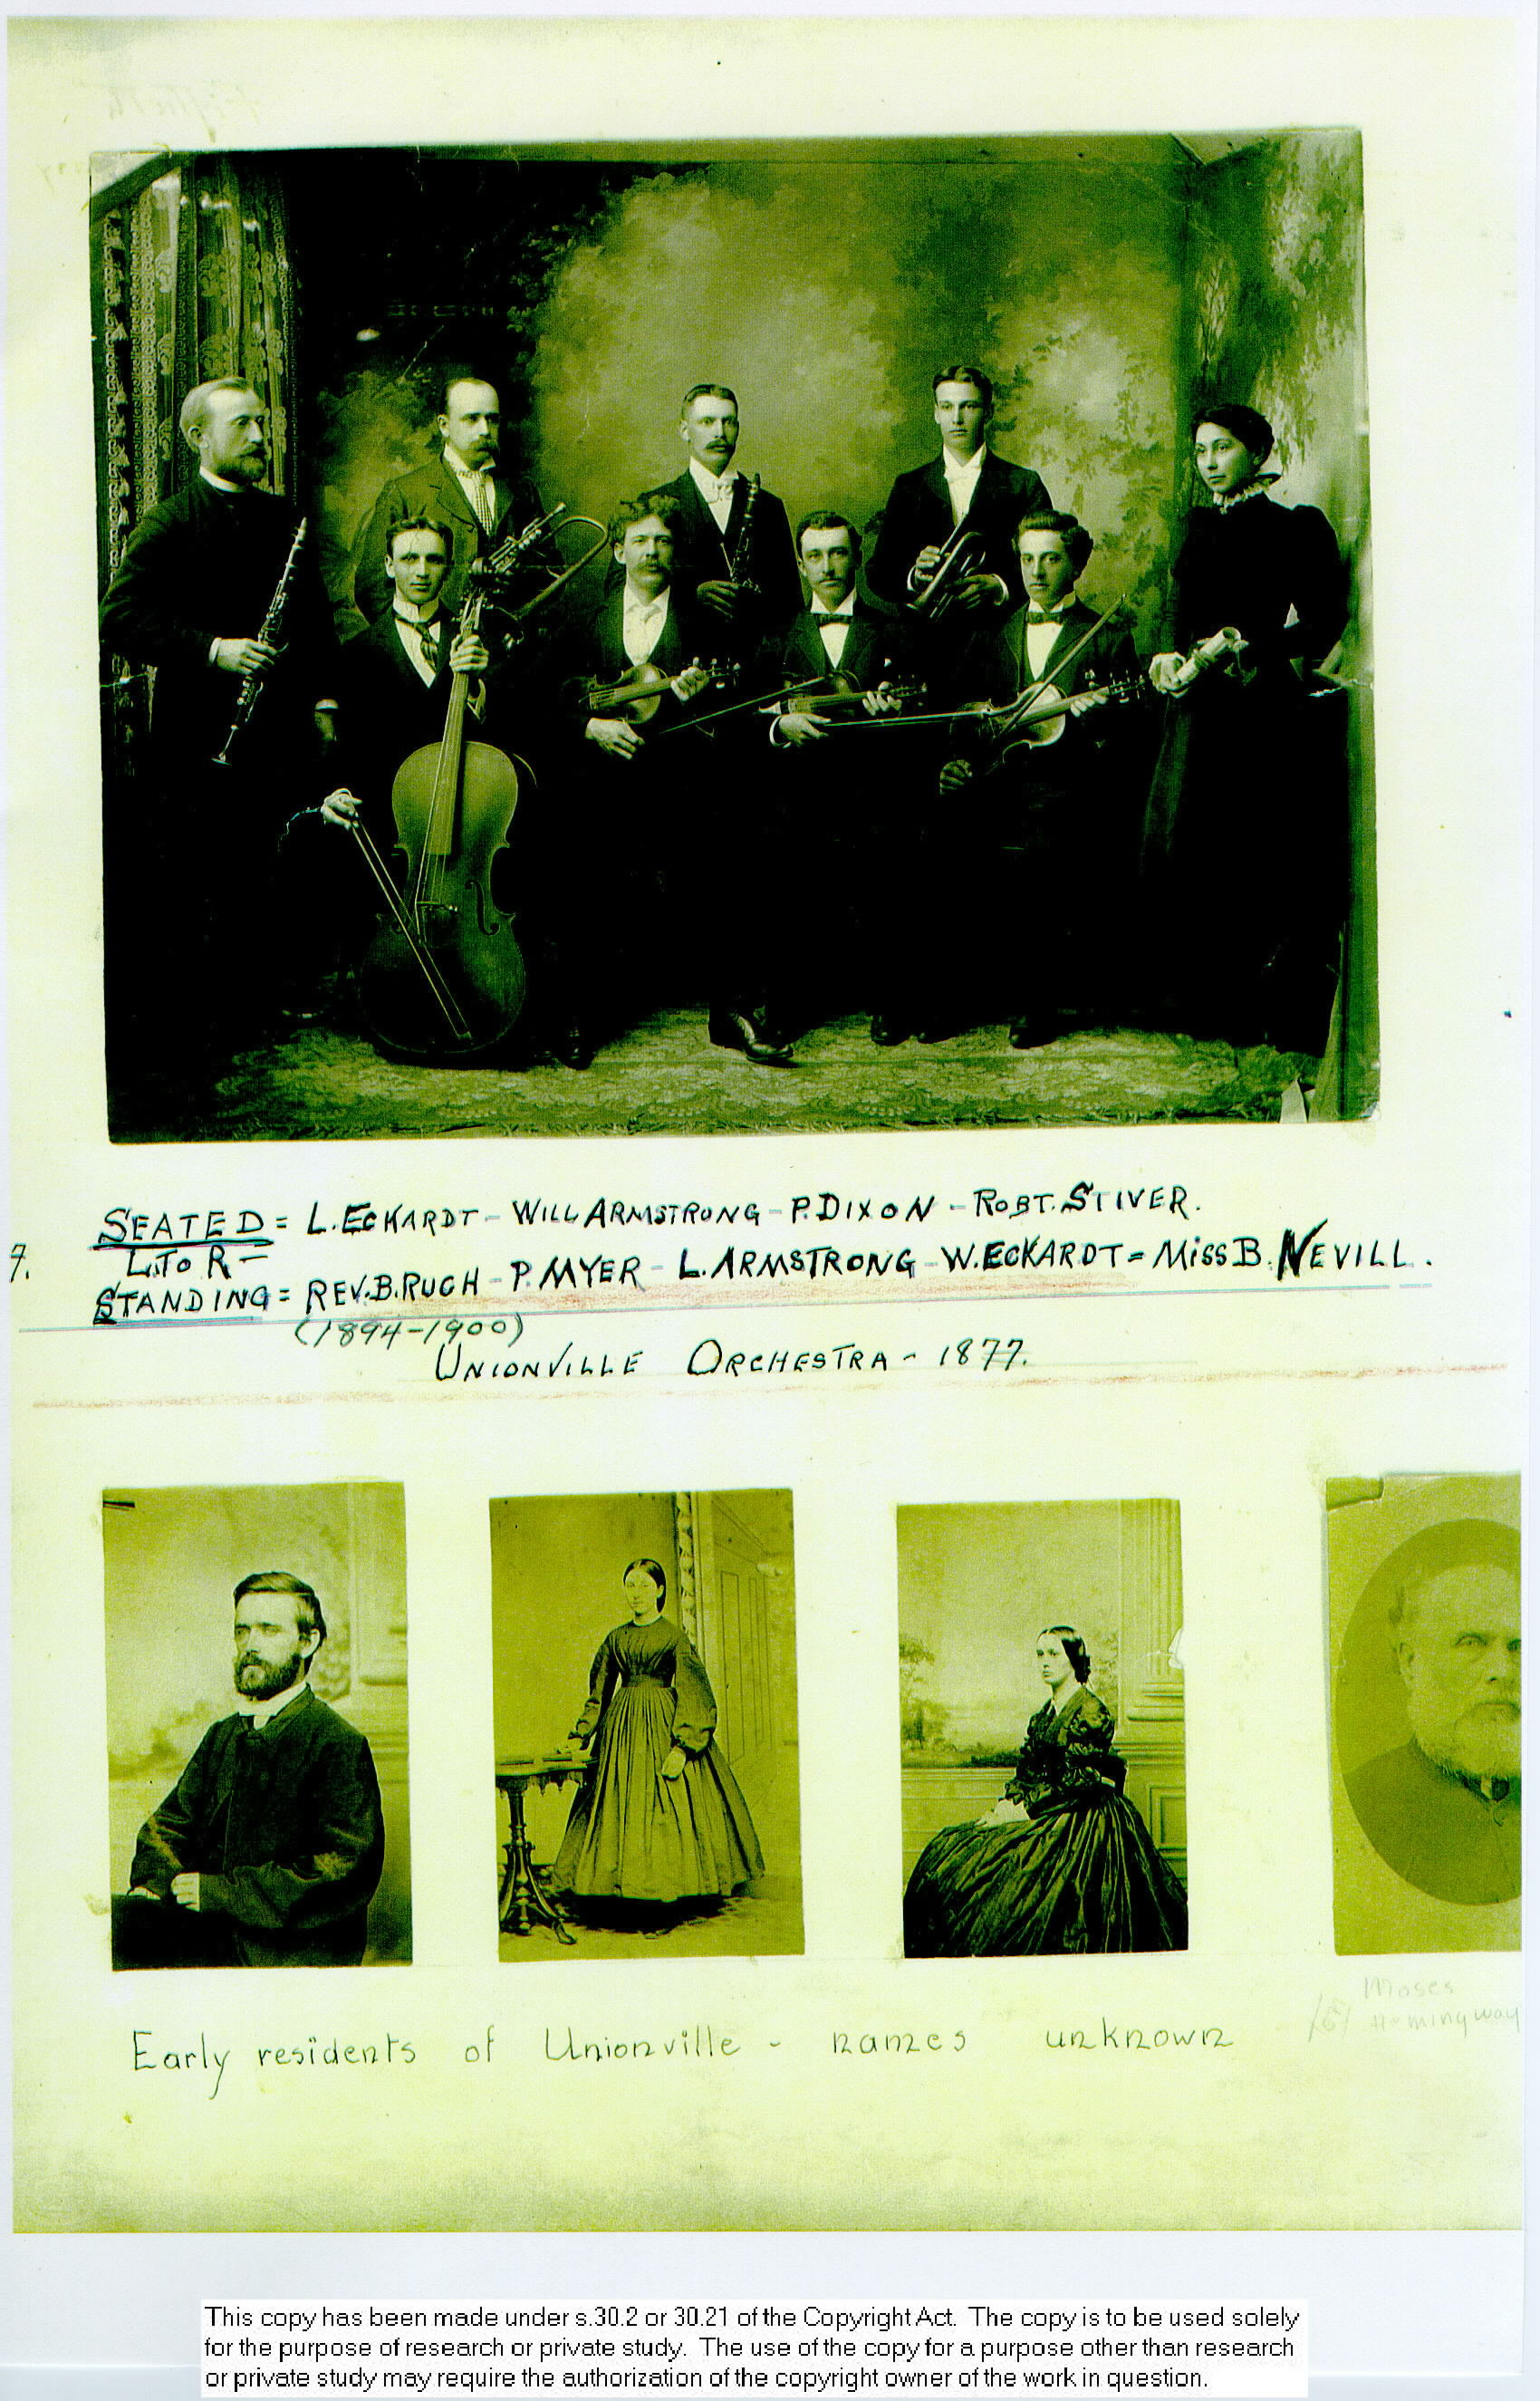 SEATED = L. ECKARDT - WILL ARMSTRONG - P. DIXON - ROBT. STIVER.
7. L. TO R -
STANDING = REV. B. RUCH - P. MYER - L. ARMSTRONG - W. ECKARDT = MISS B. NEVILL.
(1894-1900)
UNIONVILLE ORCHESTRA - 1877.
Moses
Hemingway
Early residents of Unionville - names unknown
This copy has been made under s.30.2 or 30.21 of the Copyright Act. The copy is to be used solely
for the purpose of research or private study. The use of the copy for a purpose other than research
or private study may require the authorization of the copyright owner of the work in question.